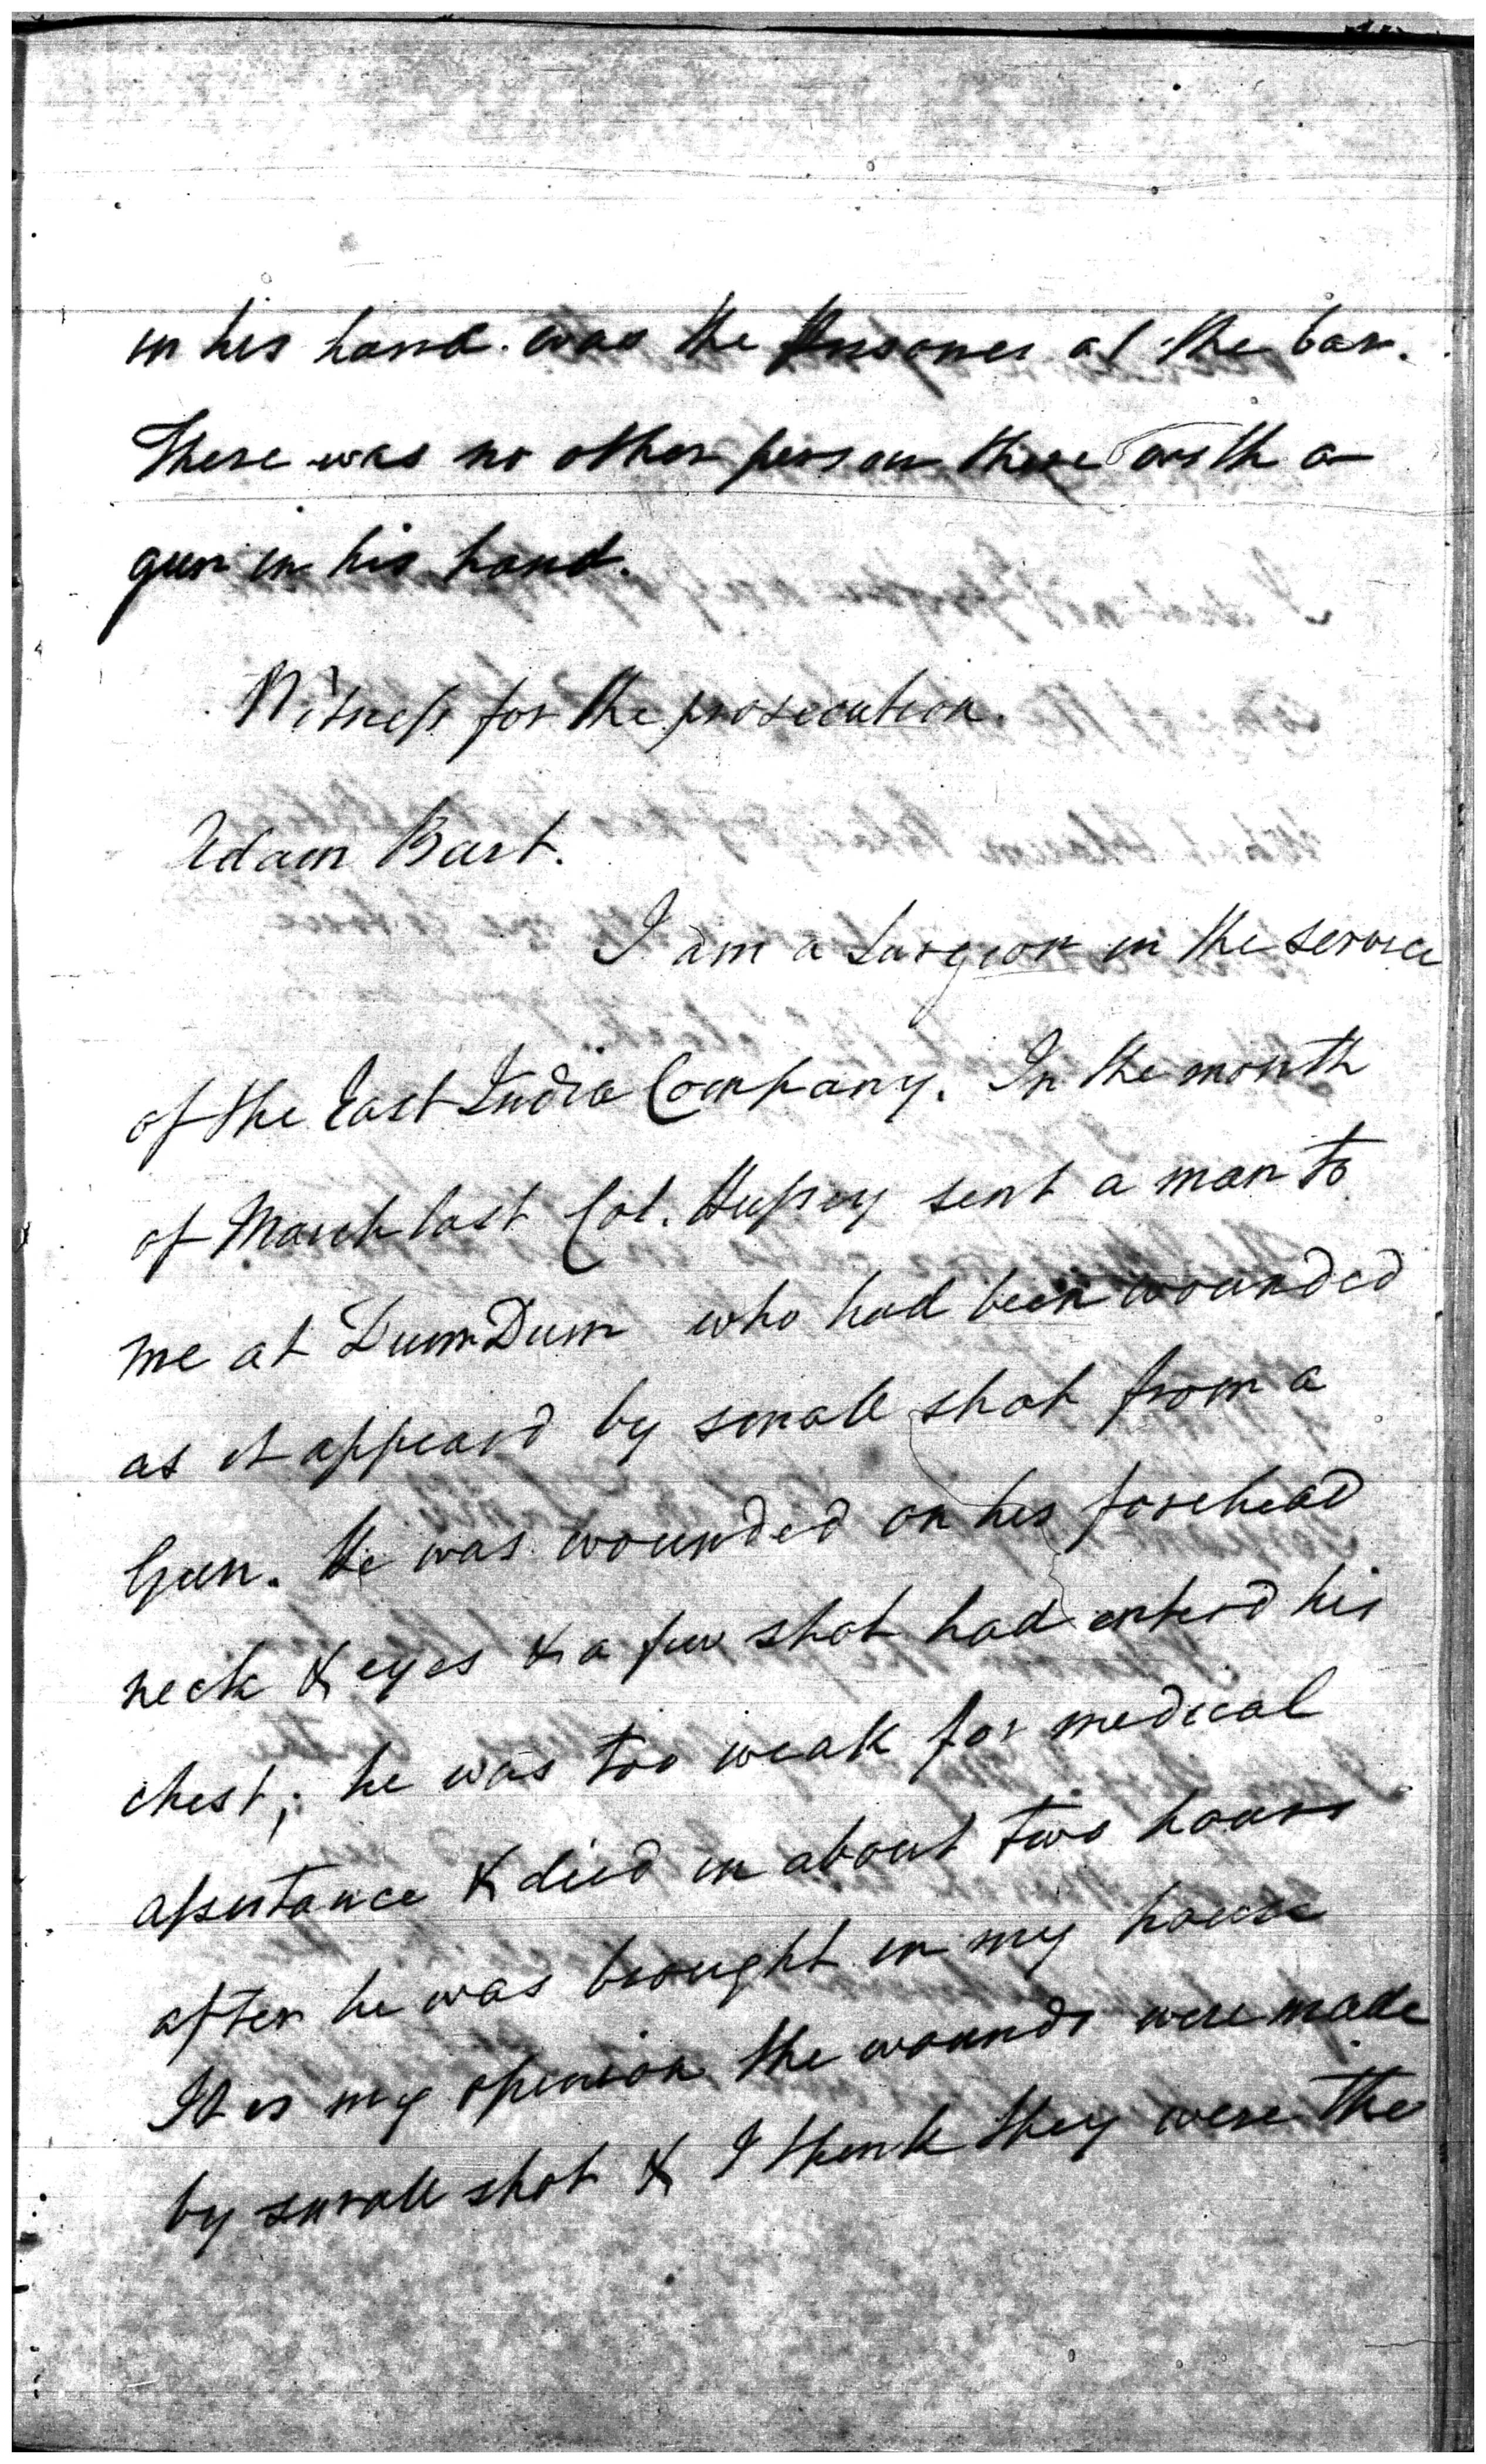 in his hand was the Prisoner at the bar.
There was no other person there with a
gun in his hand.
Witness for the prosecution.
Adam Burt.
I am a Surgeon in the service
of the East India Company. In the month
of March last Col. Hussey sent a man to
me at Dum Dum who had been wounded
as it appeard by small shot from a
Gun. He was wounded on his forehead
neck & eyes & a few shot had enterd his
chest; he was too weak for medical
assistance & died in about two hours
after he was brought in my house
It is my opinion the wounds were made
by small shot & I think they were the